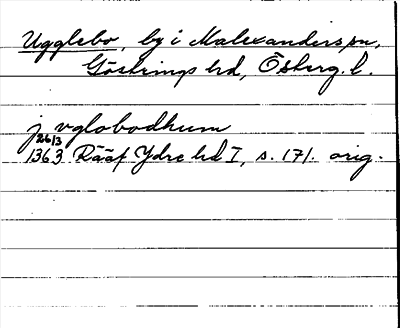 Ugglebo, by i Malexanders sn,
Göstrings hd, Österg. l.
j vglobodhum
26/3
1363 Rääf Ydre hd I, s. 171. orig.